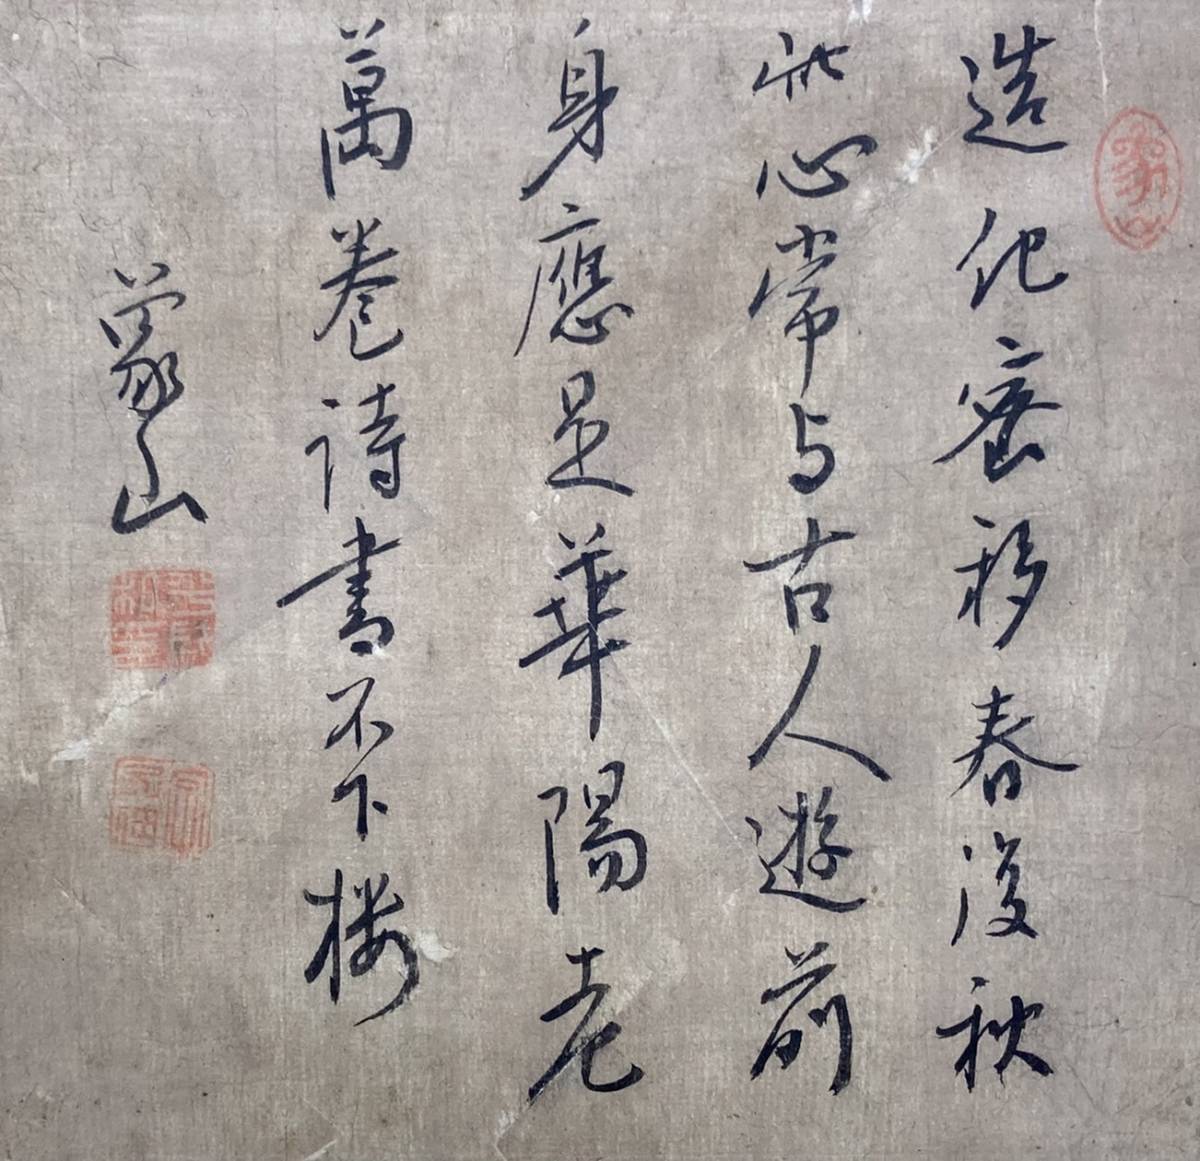 造化密移春復秋
此心常与古人遊前
身應是華陽老
萬卷詩書不下楼
蒙山